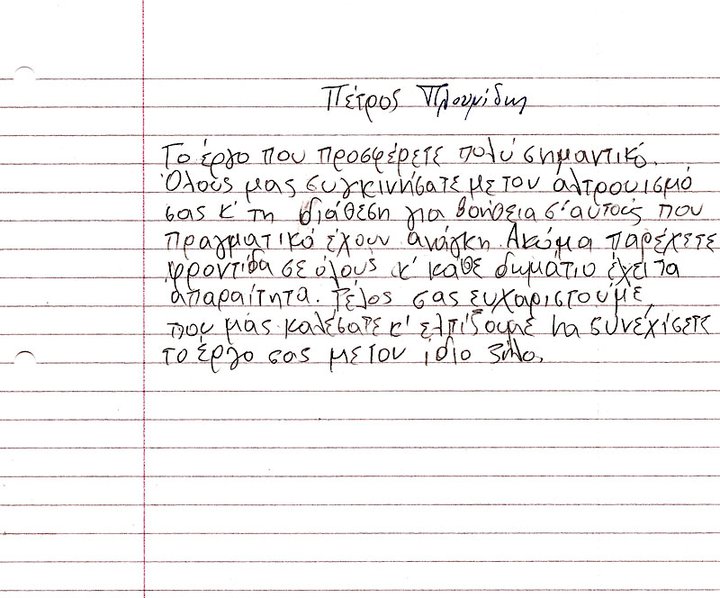 Πέτρος Πλουμίδης
Το έργο που προσφέρετε πολύ σημαντικό.
Όλους μας συγκινήσατε με τον αλτρουισμό
σας κ' τη διάθεση για βοήθεια σ' αυτούς που
πραγματικά έχουν ανάγκη. Ακόμα παρέχετε
φροντίδα σε όλους κ' κάθε δωμάτιο έχει τα
απαραίτητα. Τέλος σας ευχαριστούμε,
που μας καλέσατε κ' ελπίζουμε να συνεχίσετε
το έργο σας με τον ίδιο ζήλο.